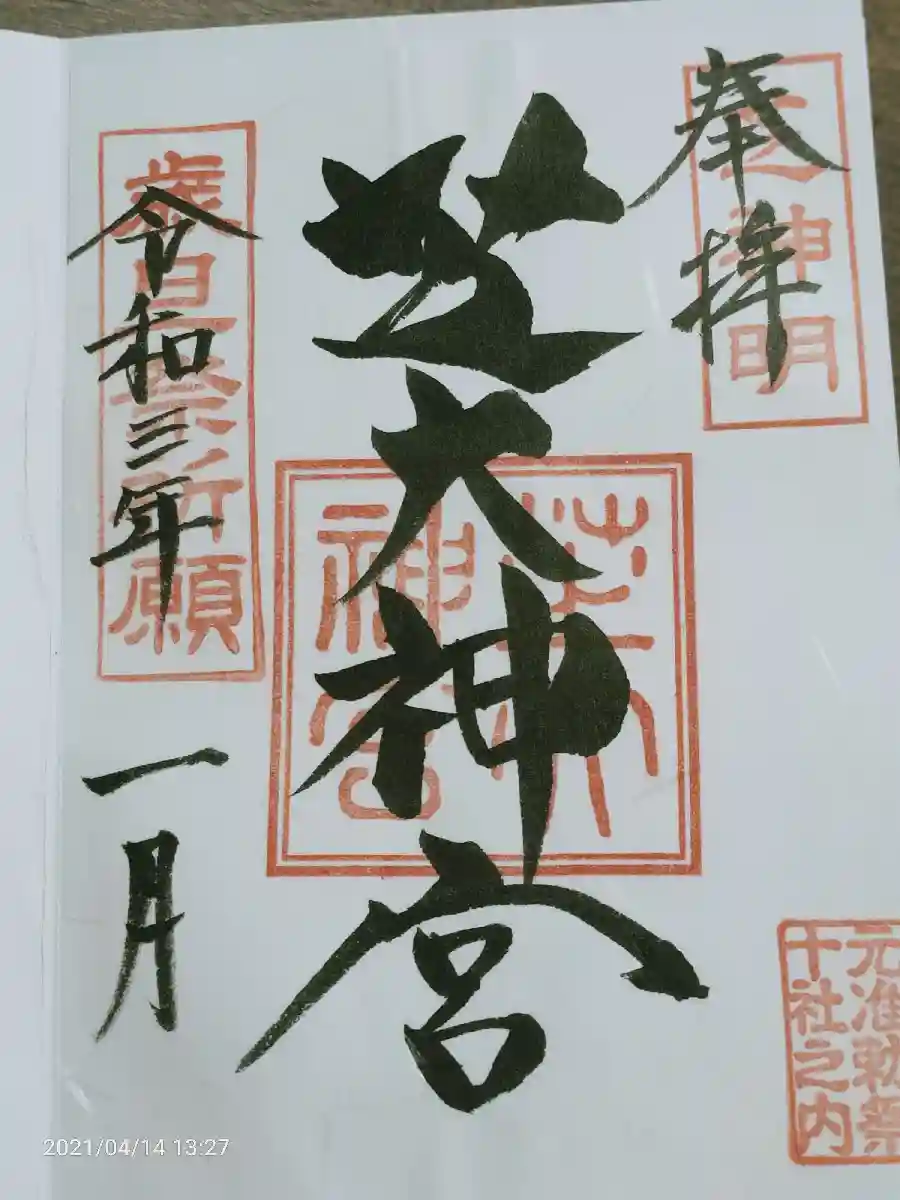 奉拝
芝神明
芝大神宮
芝大神宮
令和三年
一月
歳旦祭祈願
元准勅祭
十社之内
2021/04/14 13:27